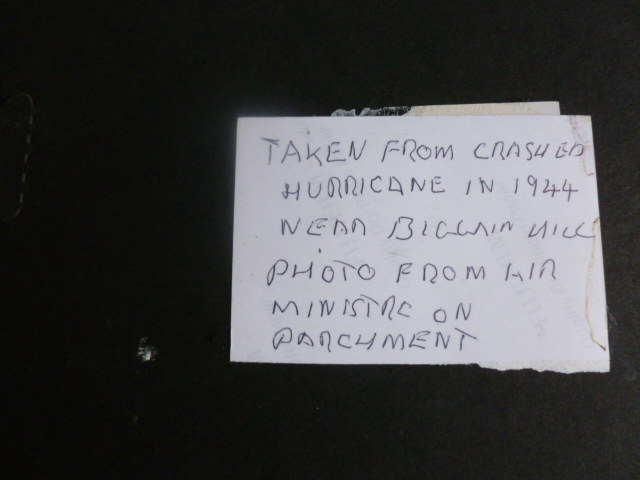 TAKEN FROM CRASHED
HURRICANE IN 1944
NEAR BIGGAIN HILL
PHOTO FROM AIR
MINISTRC ON
PARCHMENT